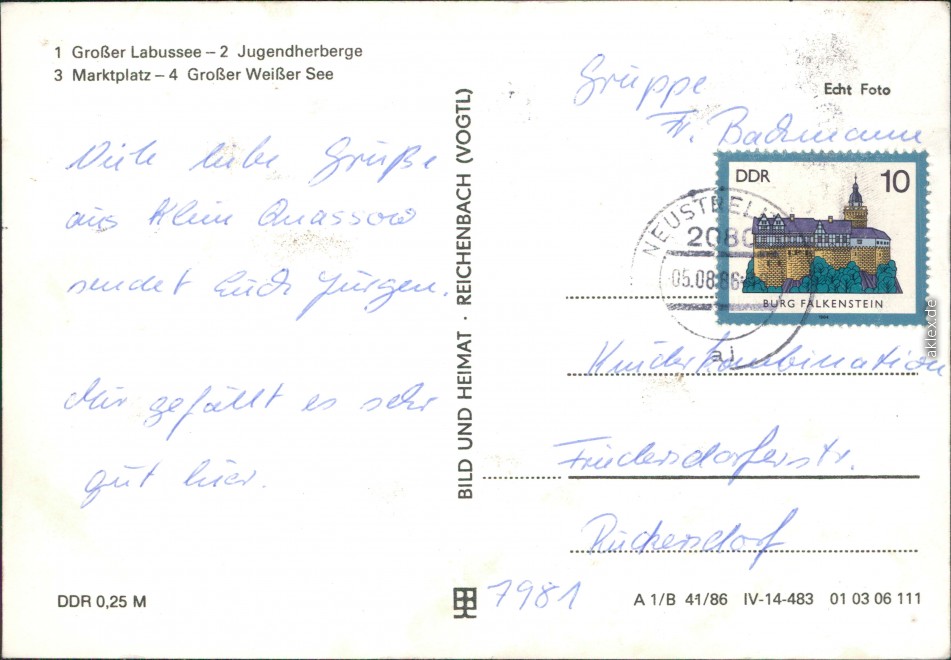 1 Großer Labussee – 2 Jugendherberge
3 Marktplatz – 4 Großer Weißer See
Viele liebe Grüße
aus Klein Quassow
sendet Euch Jürgen.
Mir gefällt es sehr
gut hier.
DDR 0,25 M
BILD UND HEIMAT · REICHENBACH (VOGTL)
Gruppe
Fr. Bachmann
Echt Foto
DDR 10
BURG FALKENSTEIN
NEUSTRELI
2080
05.08.86
aj
Kinderkombination
Friedersdorferstr.
Rückersdorf
7981
A 1/B 41/86 IV-14-483 01 03 06 111
aklex.de